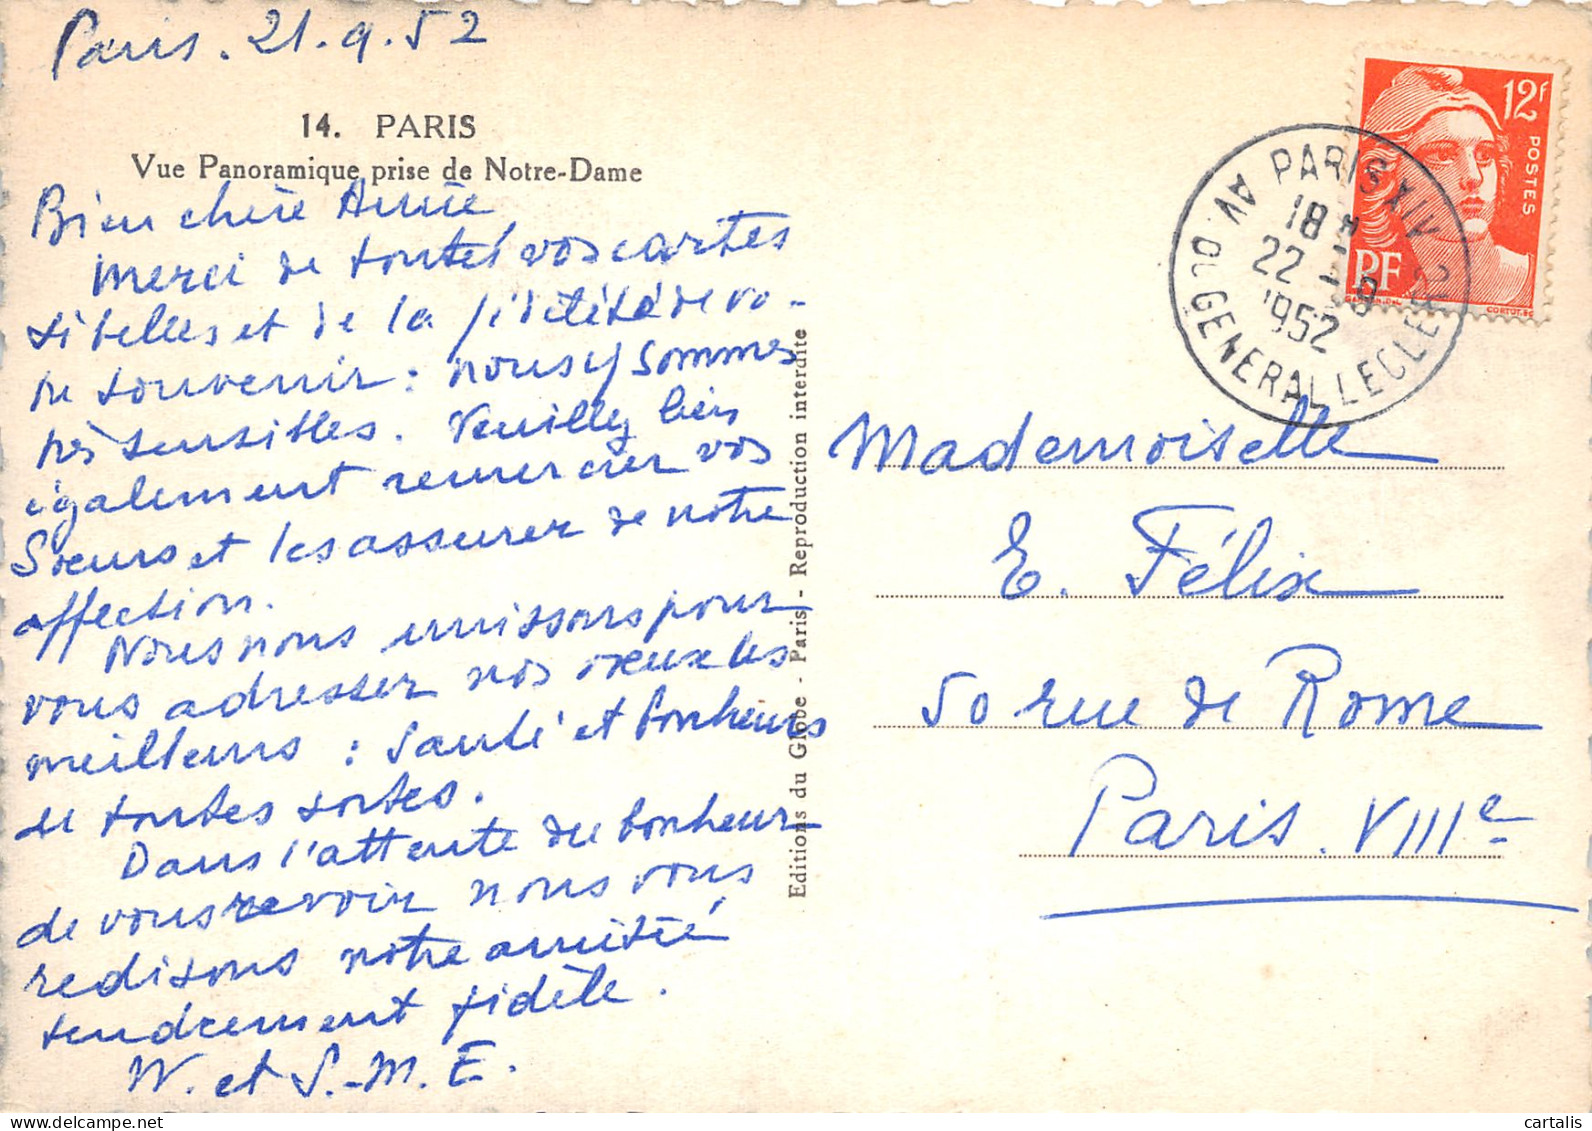 Paris. 21.9.52
14. PARIS
Vue Panoramique prise de Notre-Dame
Bien chère Amie,
Merci de toutes vos cartes
si belles et de la fidélité de vo-
tre souvenir : nous y sommes
très sensibles. Veuillez bien
également remercier vos
Soeurs et les assurer de notre
affection.
Nous nous unissons pour
vous adresser nos voeux les
meilleurs : Santé et bonheurs
de toutes sortes.
Dans l'attente du bonheur
de vous revoir nous vous
redisons notre amitié
tendrement fidèle.
W. et S.-M. E.
Editions du Globe - Paris - Reproduction interdite
12F
POSTES
RF
GANDON.DEL
CORTOT.SC
PARIS XIV
AV. DU GENERAL LECLERC
18 H
22 - 9
1952
Mademoiselle
E. Félix
50 rue de Rome
Paris. VIIIe
cartalis